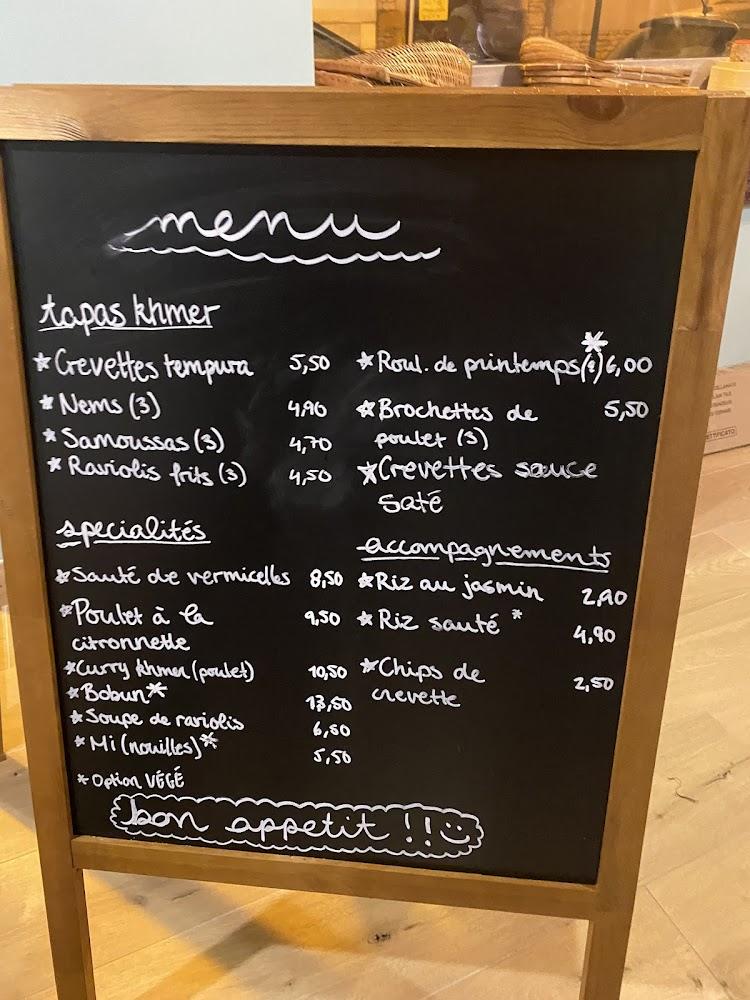 menu
tapas khmer
* Crevettes tempura 5,50
* Nems (3) 4,90
* Samoussas (3) 4,70
* Raviolis frits (3) 4,50
* Roul. de printemps * 6,00
* Brochettes de 5,50
poulet (3)
* Crevettes sauce
saté
spécialités
* Sauté de vermicelles 8,50
* Poulet à la 9,50
citronnelle
* Curry khmer (poulet) 10,50
* Bobun* 13,50
* Soupe de raviolis 6,50
* Mi (nouilles)* 5,50
* Option VÉGÉ
accompagnements
* Riz au jasmin 2,90
* Riz sauté * 4,90
* Chips de 2,50
crevette
bon appetit !!